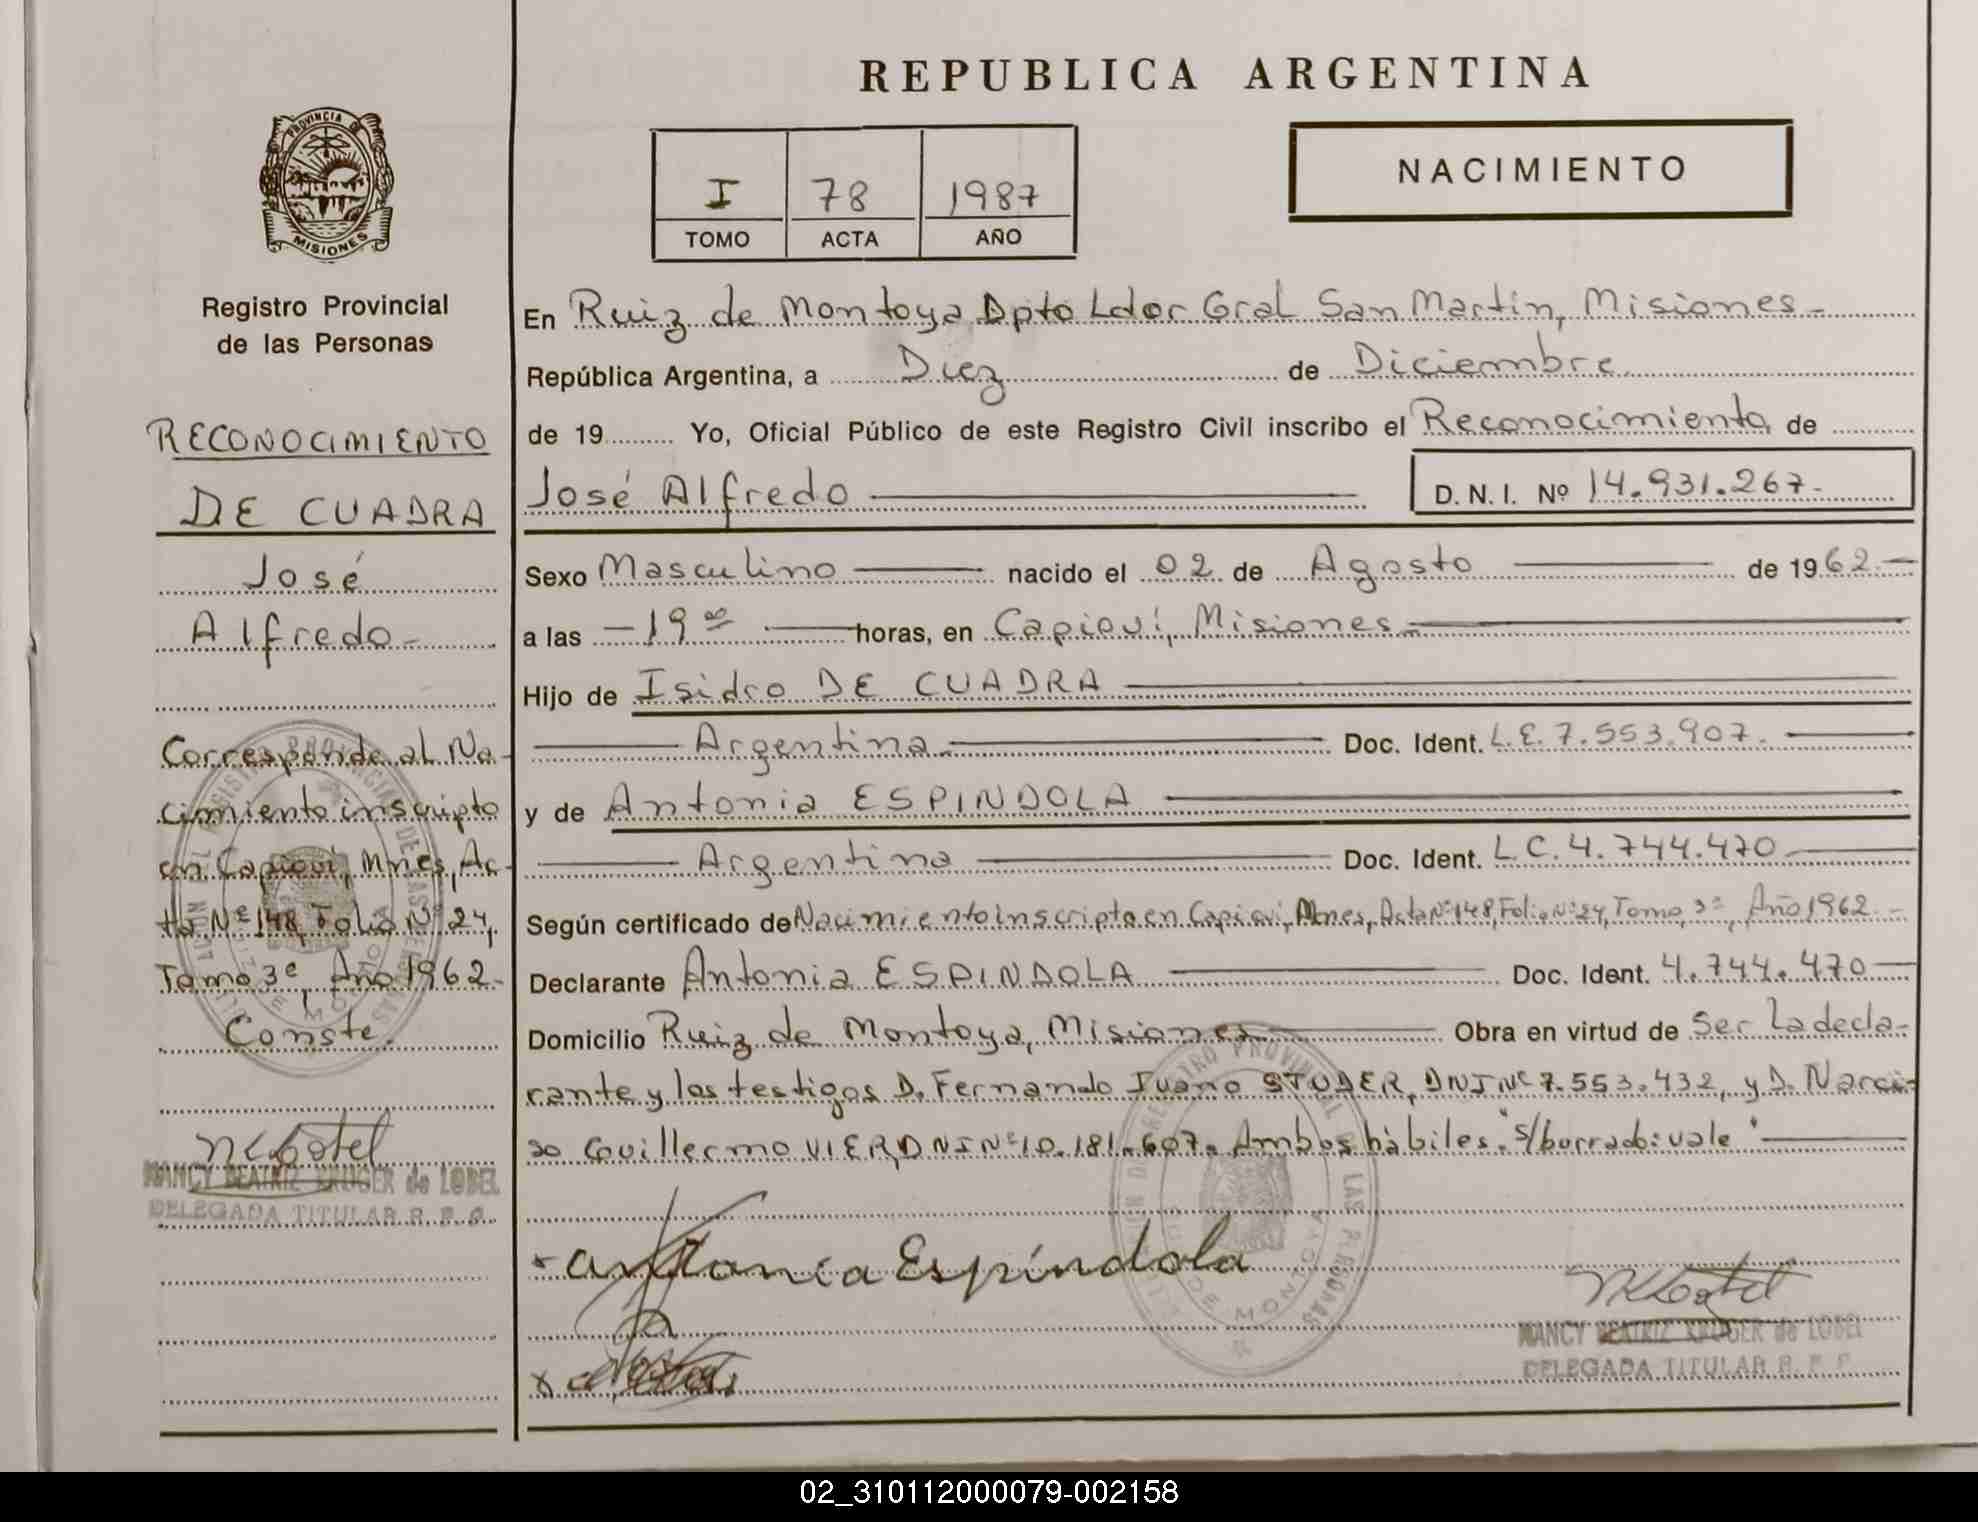 REPUBLICA ARGENTINA
NACIMIENTO
I 78 1987
TOMO ACTA AÑO
PROVINCIA DE
MISIONES
Registro Provincial
de las Personas
RECONOCIMIENTO
DE CUADRA
José
Alfredo -
Corresponde al Na-
cimiento inscripto
en Capioví, Mnes, Ac-
ta Nº 148, Folio Nº 24,
Tomo 3º, Año 1962 -
Conste.
NANCY BEATRIZ KRUGER de LOBEL
DELEGADA TITULAR R. P. P.
En Ruiz de Montoya Dpto Ldor Gral San Martín, Misiones -
República Argentina, a Diez de Diciembre
de 19 Yo, Oficial Público de este Registro Civil inscribo el Reconocimiento de
José Alfredo
D. N. I. Nº 14.931.267-
Sexo Masculino nacido el 02 de Agosto de 1962.-
a las -19 horas, en Capioví, Misiones -
Hijo de Isidro DE CUADRA
Argentina Doc. Ident. L.E. 7.553.907.
y de Antonia ESPINDOLA
Argentina Doc. Ident. L.C. 4.744.470
Según certificado de Nacimiento inscripto en Capioví, Mnes, Acta Nº 148, Folio Nº 24, Tomo 3º, Año 1962 -
Declarante Antonia ESPINDOLA Doc. Ident. 4.744.470
Domicilio Ruiz de Montoya, Misiones Obra en virtud de Ser la decla-
rante y los testigos D. Fernando Ivano STUDER, DNI Nº 7.553.432, y D. Narci-
so Guillermo VIER, DNI Nº 10.181.607. Ambos hàbiles. "s/borrado: vale"
x Antonia Espíndola
x
NANCY BEATRIZ KRUGER de LOBEL
DELEGADA TITULAR R. P. P.
02_310112000079-002158